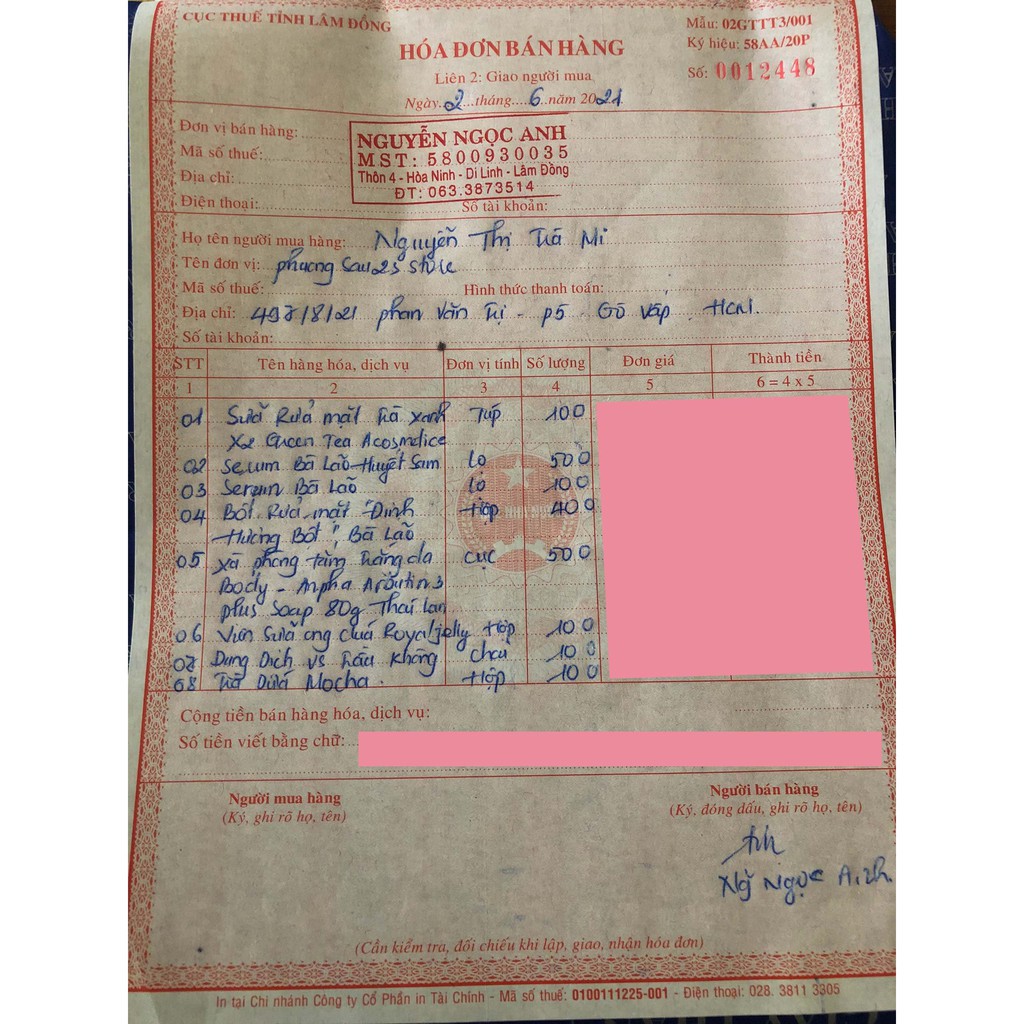 CỤC THUẾ TỈNH LÂM ĐỒNG
Mẫu: 02GTTT3/001
HÓA ĐƠN BÁN HÀNG
Ký hiệu: 58AA/20P
Liên 2: Giao người mua
Số: 0012448
Ngày 2 tháng 6 năm 2021
Đơn vị bán hàng:
Mã số thuế:
Địa chỉ:
Điện thoại: Số tài khoản:
NGUYỄN NGỌC ANH
MST: 5800930035
Thôn 4 - Hòa Ninh - Di Linh - Lâm Đồng
ĐT: 063.3873514
Họ tên người mua hàng: Nguyễn Thị Trà Mi
Tên đơn vị: phương Sau2s store
Mã số thuế: Hình thức thanh toán:
Địa chỉ: 497/8/21 phan Văn Trị - p5 - Gò Vấp. HCM.
Số tài khoản:
STT Tên hàng hóa, dịch vụ Đơn vị tính Số lượng Đơn giá Thành tiền
1 2 3 4 5 6 = 4 x 5
01 Sữa Rửa mặt Trà xanh Túp 100
Green Tea Acosmetics
02 Serum Bà Lão Huyết Sâm Lọ 500
03 Serum Bà Lão Lọ 100
04 Bột Rửa mặt "Đinh Hộp 400
Hương Bột" Bà Lão
05 Xà phòng tắm trắng da cục 500
Body - Anpha Arbutin 3
plus Soap 80g Thái Lan
06 Viên Sữa ong chúa Royal jelly Hộp 100
07 Dung Dịch vs Trầu Không chai 100
08 Trà Dứa Mocha. Hộp 100
Cộng tiền bán hàng hóa, dịch vụ:
Số tiền viết bằng chữ:
Người mua hàng
(Ký, ghi rõ họ, tên)
Người bán hàng
(Ký, đóng dấu, ghi rõ họ, tên)
Ng Ngọc Anh.
(Cần kiểm tra, đối chiếu khi lập, giao, nhận hóa đơn)
In tại Chi nhánh Công ty Cổ Phần in Tài Chính - Mã số thuế: 0100111225-001 - Điện thoại: 028. 3811 3305